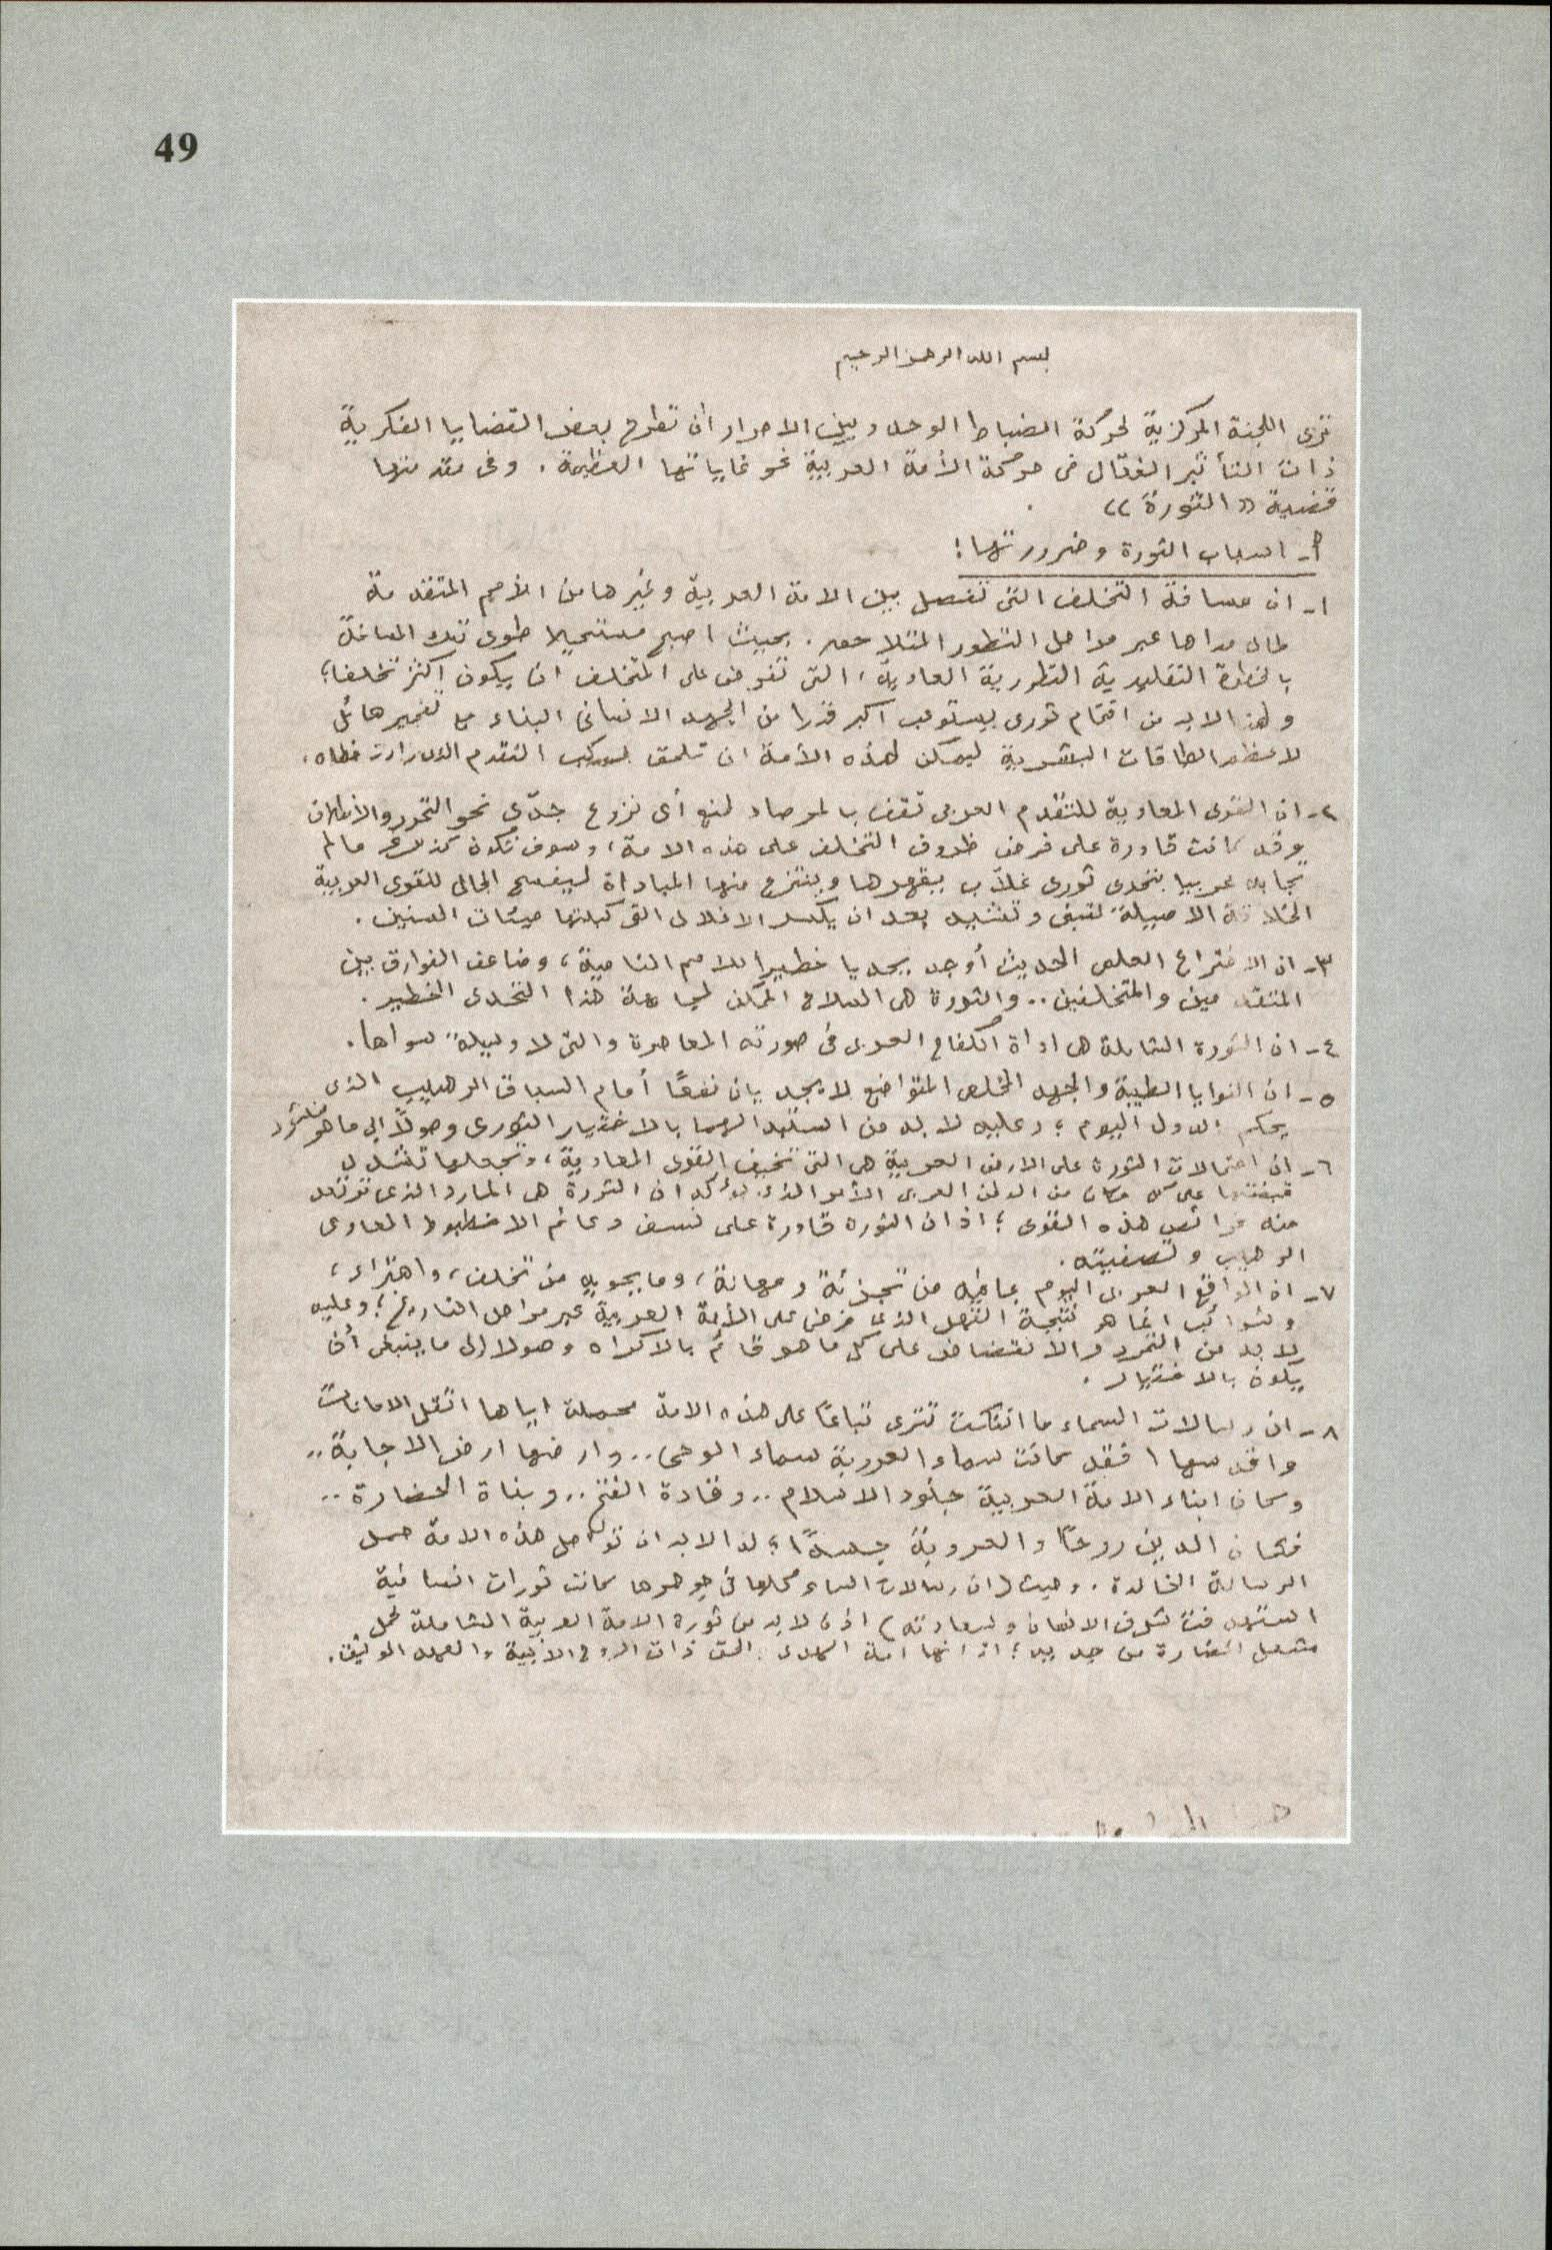 49
بسم الله الرحمن الرحيم
ترى اللجنة المركزية لحركة الضباط الوحدويين الاحرار أن تطرح بعض القضايا الفكرية
ذات التأثير الفعّال فى حركة الأمة العربية نحو غاياتها العظيمة. وفى مقدمتها
قضية «الثورة».
أ- اسباب الثورة وضرورتها:
١- ان مسافة التخلف التى تفصل بين الامة العربية وغيرها من الأمم المتقدمة
طال مداها عبر مراحل التطور المتلاحقه. بحيث اصبح مستحيلا طوى تلك المسافة
بالخطوة التقليدية التطورية العادية، التى تفرض على المتخلف ان يكون اكثر تخلفا؛
ولهذا لابد من اقتحام ثورى يستوعب اكبر قدرا من الجهد الانسانى البناء مع تفجير هائل
لاعظم الطاقات البشرية ليمكن لهذه الأمة ان تلحق بموكب التقدم الذى زادت خطاه.
٢- ان القوى المعادية للتقدم العربى تقف بالمرصاد لمنع أى نزوع جدّى نحو التحرر والانطلاق
وقد كانت قادرة على فرض ظروف التخلف على هذه الامة، وسوف تكون كذلك ما لم
تجابه عربيا بتحدى ثورى غلاّب يقهرها وينتزع منها المباداة ليفسح المجال للقوى العربية
الخلاقة الاصيلة لتبنى وتشيد بعد ان يكسر الاغلال التى كبلتها مئات السنين.
٣- ان الاختراع العلمى الحديث أوجد تحديا خطيرا للامم النامية، وضاعف الفوارق بين
المتقدمين والمتخلفين.. والثورة هى السلاح الممكن لمجابهة هذا التحدى الخطير.
٤- ان الثورة الشاملة هى اداة الكفاح العربى فى صورته المعاصرة والتى لا وسيلة سواها.
٥- ان النوايا الطيبة والجهد المخلص المتواضع لا يجديان نفعًا أمام السباق الرهيب الذى
يحكم الدول اليوم؛ وعليه لابد من استبدالهما بالاختيار الثورى وصولاً إلى ما هو منشود
٦- ان احتمالات الثورة على الارض العربية هى التى تخيف القوى المعادية، وتجعلها تشدد
قبضتها على كل مكان من الوطن العربى الأمر الذى يؤكد ان الثورة هى المارد الذى ترتعد
منه فرائص هذه القوى؛ اذ ان الثوره قادرة على نسف دعائم الاخطبوط المعادى
الرهيب وتصفيته.
٧- ان الواقع العربى اليوم بما فيه من تجزئة ومهانة، وما يحويه من تخلف، واهتراء،
وشوائب انما هو نتيجة القهر الذى فرض على الأمة العربية عبر مراحل التاريخ؛ وعليه
لابد من التمرد والانقضاض على كل ما هو قائم بالاكراه وصولا إلى ما ينبغى أن
يكون بالاختيار.
٨- ان رسالات السماء ما انفكت تترى تباعًا على هذه الامة محملة اياها اثقل الامانات
واقدسها، فقد كانت سماء العروبة سماء الوحى.. وارضها ارض الاجابة..
وكان ابناء الامة العربية جنود الاسلام.. وقادة الفتح.. وبناة الحضارة..
فكان الدين روحًا والعروبة جسدًا؛ لذا لابد ان تواصل هذه الامة حمل
الرسالة الخالدة. وحيث (ان رسالات السماء كلها فى جوهرها كانت ثورات انسانية
استهدفت شرف الانسان وسعادته) اذن لابد من ثورة الامة العربية الشاملة لحمل
مشعل الحضارة من جديد؛ اذ انها امة الهدى الحق ذات الروح الابية والعهد الوثيق.